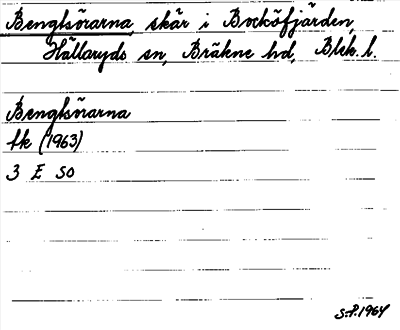 Bengtsörarna, skär i Bocköfjärden,
Hällaryds sn, Bräkne hd, Blek. l.
Bengtsörarna
fk (1963)
3 E SO
S.P. 1964